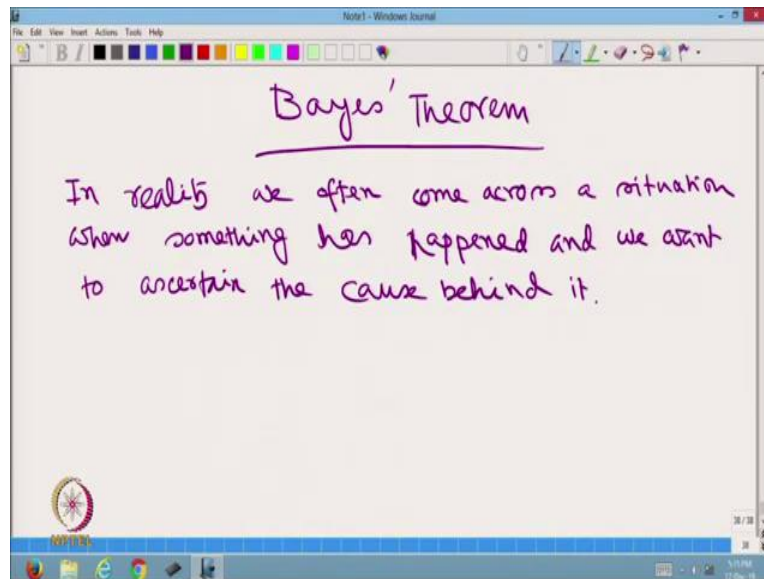 Note1 - Windows Journal
File Edit View Insert Actions Tools Help
B I
Bayes' Theorem
In reality we often come across a situation
when something has happened and we want
to ascertain the cause behind it.
38 / 38
38
NPTEL
5:15 PM